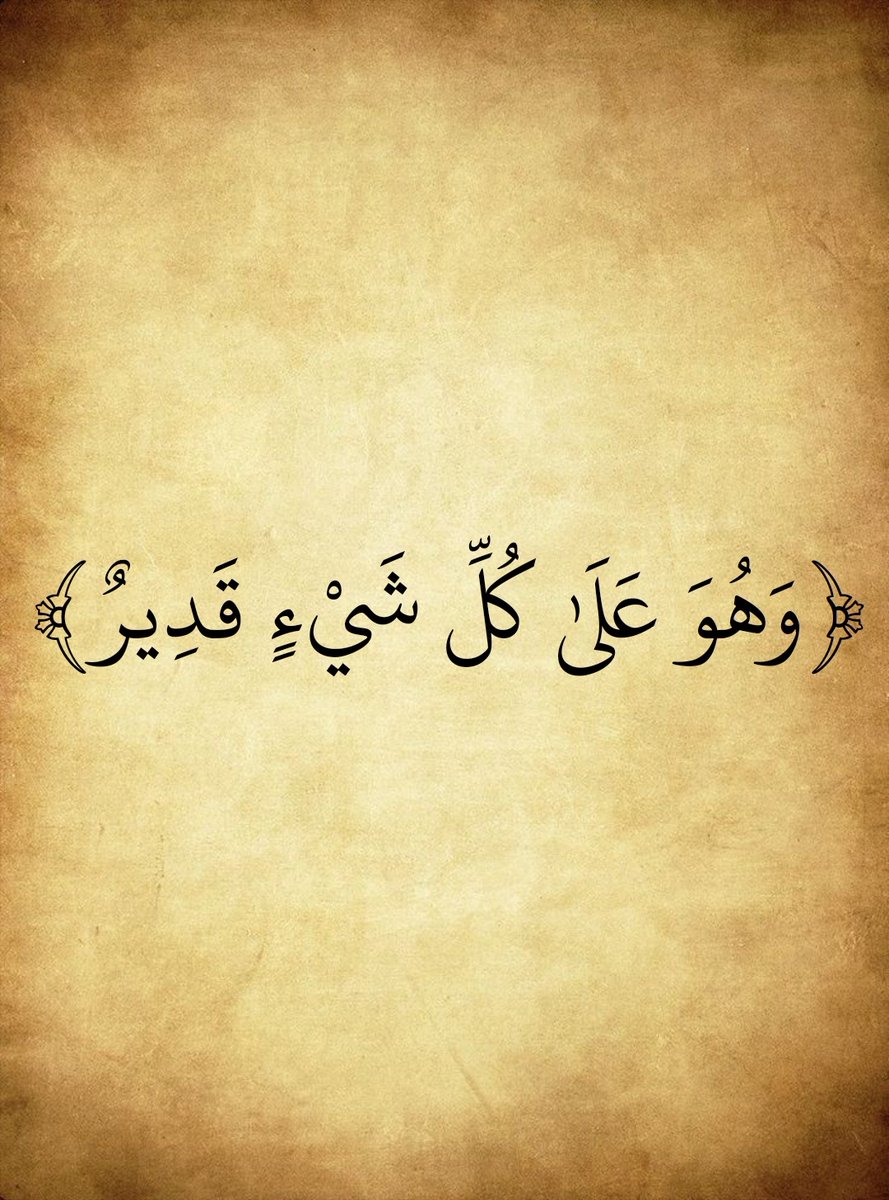 ﴿وَهُوَ عَلَىٰ كُلِّ شَيْءٍ قَدِيرٌ﴾